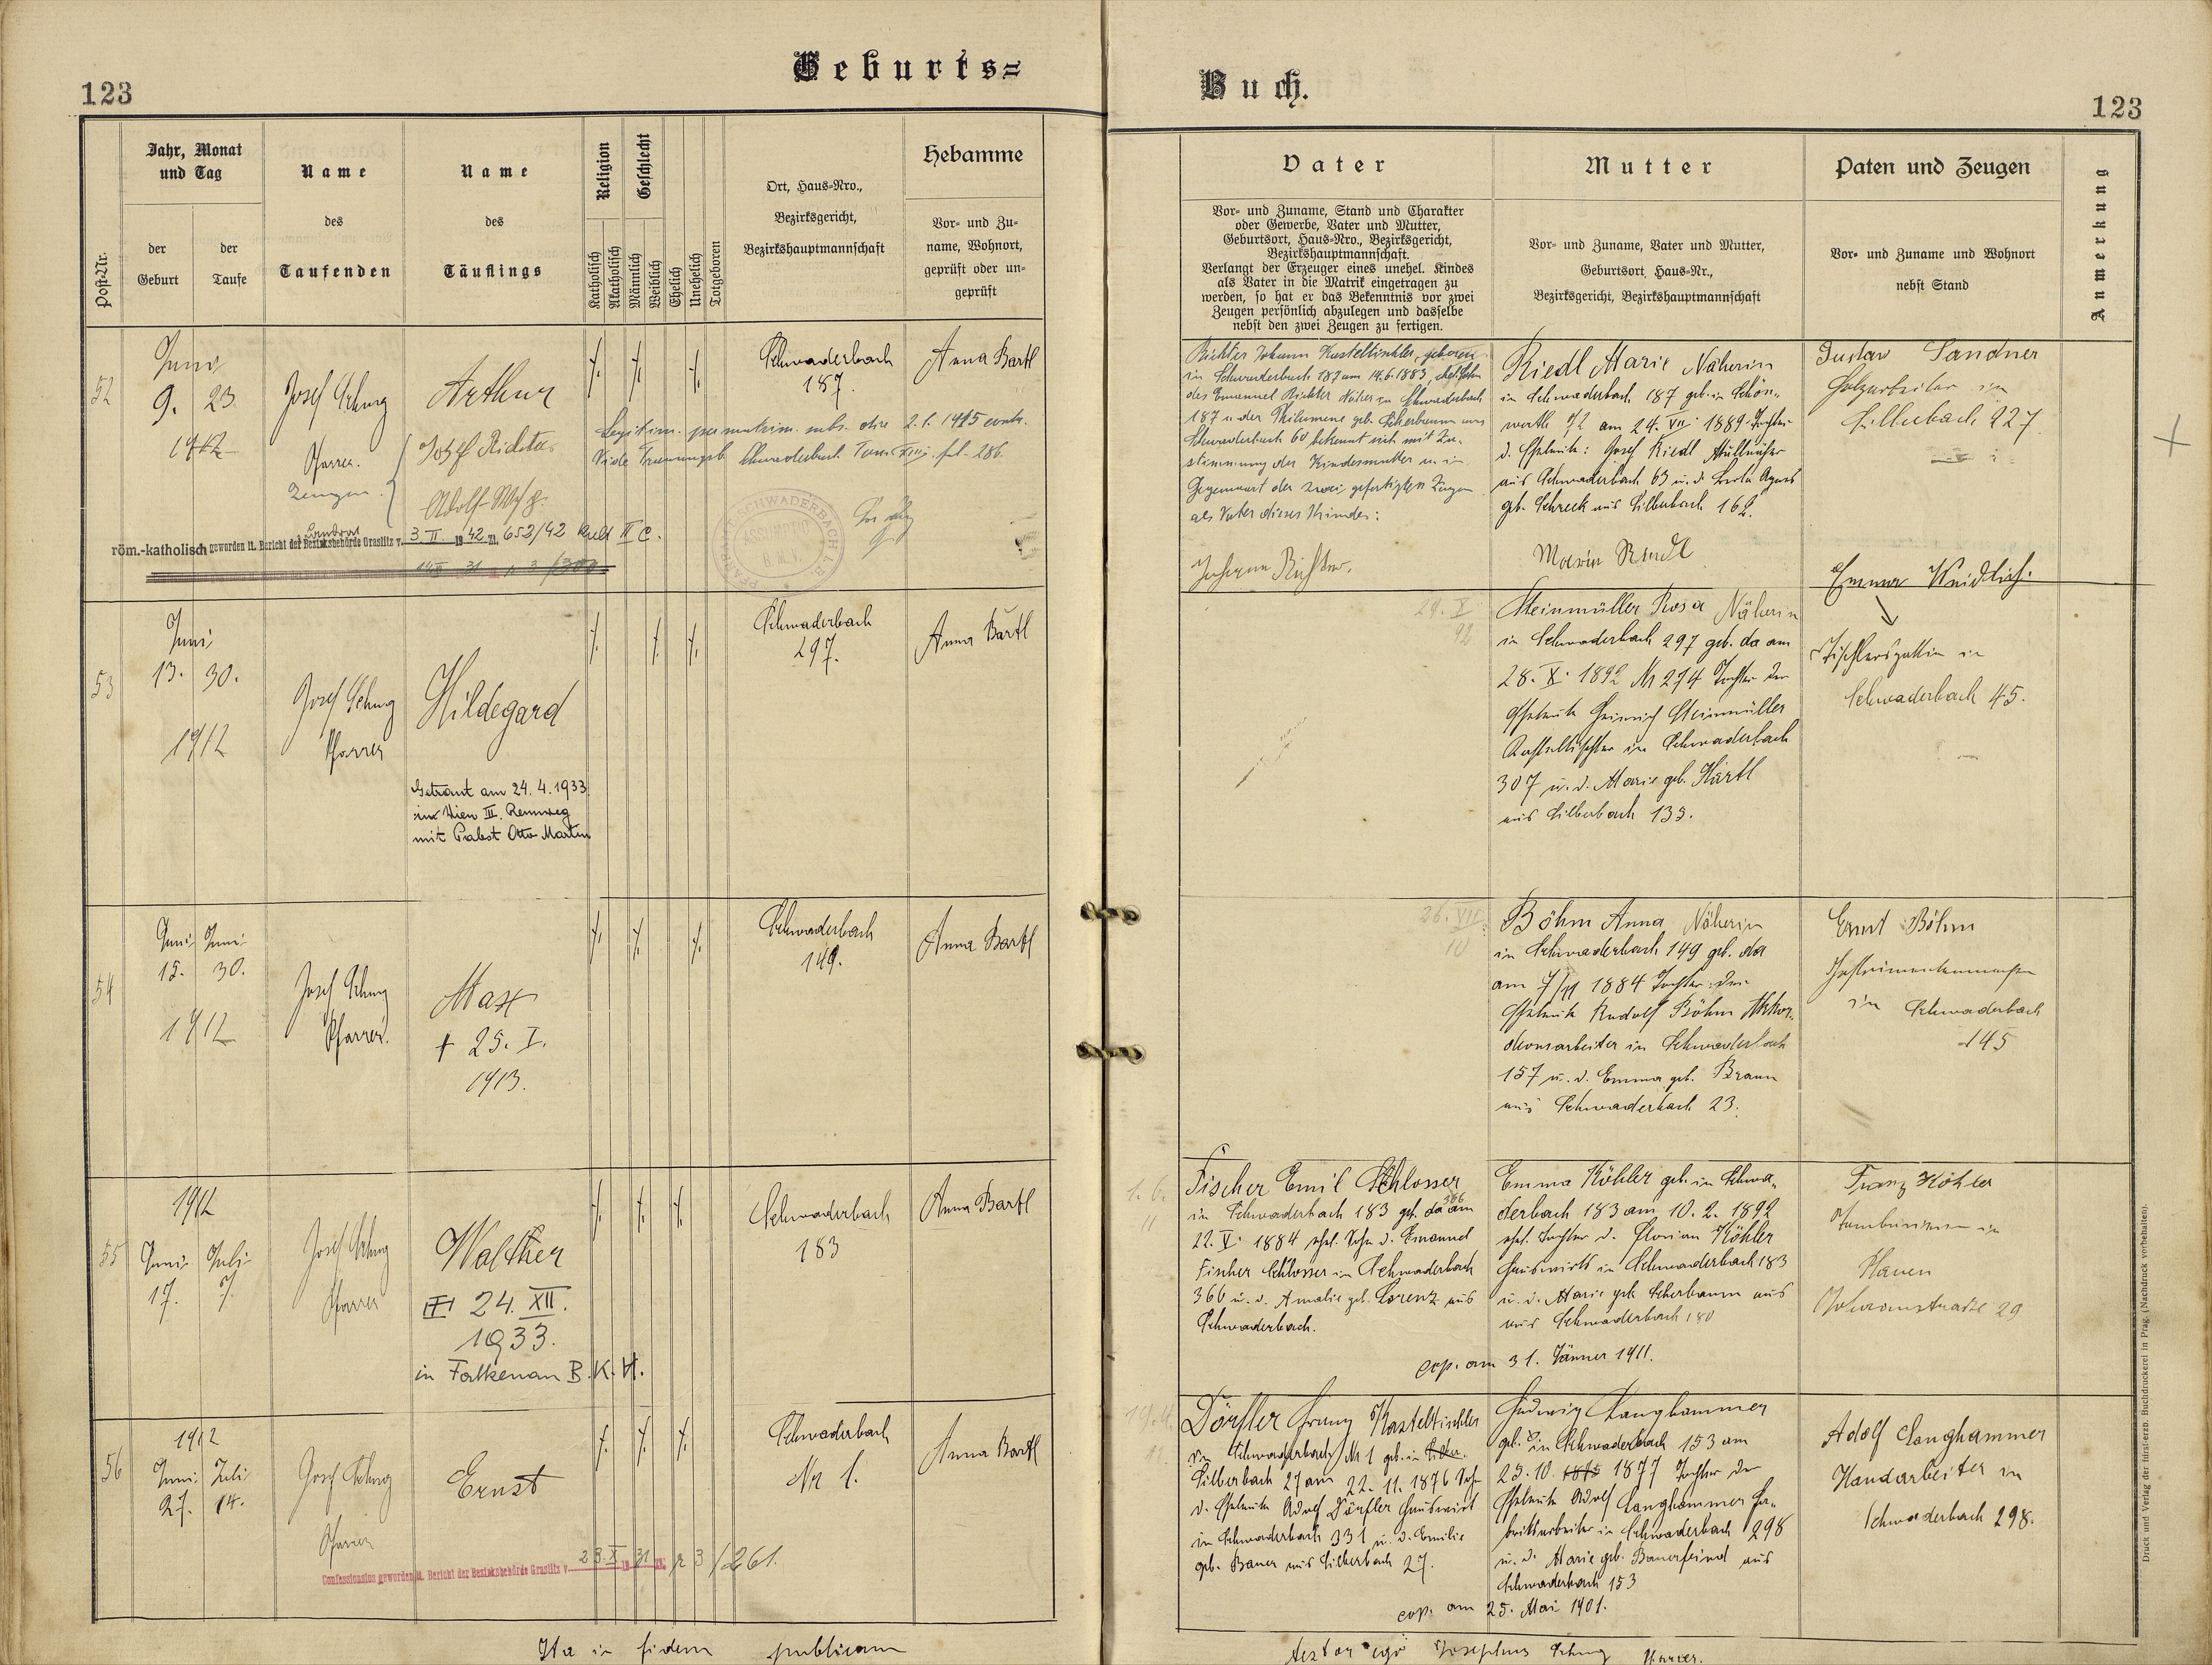 Geburts=
Buch.
123
123
Jahr, Monat
und Tag
Name
Name
Religion
Geschlecht
Ort, Haus=Nro.,
Bezirksgericht,
Bezirkshauptmannschaft
Hebamme
Post=Nr.
der
Geburt
der
Taufe
des
Taufenden
des
Täuflings
Katholisch
Akatholisch
Männlich
Weiblich
Ehelich
Unehelich
Totgeboren
Vor= und Zu=
name, Wohnort,
geprüft oder un=
geprüft
Vater
Mutter
Paten und Zeugen
Anmerkung
Vor= und Zuname, Stand und Charakter
oder Gewerbe, Vater und Mutter,
Geburtsort, Haus=Nro., Bezirksgericht,
Bezirkshauptmannschaft.
Verlangt der Erzeuger eines unehel. Kindes
als Vater in die Matrik eingetragen zu
werden, so hat er das Bekenntnis vor zwei
Zeugen persönlich abzulegen und dasselbe
nebst den zwei Zeugen zu fertigen.
Vor= und Zuname, Vater und Mutter,
Geburtsort, Haus=Nr.,
Bezirksgericht, Bezirkshauptmannschaft
Vor= und Zuname und Wohnort
nebst Stand
52
Juni
9. 23.
1912
Josef
Pfarrer.
Zeugen.
Arthur
Josef Richter
Adolf
Schwaderbach
187.
Anna Bartl
Legitim. per matrim. subs. die 2. 1915 contr.
Vide Trauungsb. Schwaderbach Tom. XIII. fol. 286
Landrat
röm.-katholisch geworden lt. Bericht der Bezirksbehörde Graslitz v. 3. II 1942 Zl. 653/42 Kult II C.
PFARRAMT SCHWADERBACH
Richter Johann Kasteltischler, geboren
in Schwaderbach 187 am 14.6.1883, ehel. Sohn
des Emanuel Richter in Schwaderbach
187 u. der Philomene geb. Scherbaum aus
Schwaderbach 60 bekennt sich mit Zu-
stimmung der Kindesmutter u. in
Gegenwart der zwei gefertigten Zeugen
als Vater dieses Kindes:
Johann Richter.
Riedl Marie Näherin
in Schwaderbach 187 geb. in Schön-
werth 92 am 24. VII. 1889 Tochter
d. Eheleute: Josef Riedl
aus Schwaderbach 63 u. d. Agnes
geb. Schreck aus Silberbach 162.
Maria Riedl
Gustav Sandner
Holzarbeiter in
Silberbach 227
53
Juni
13. 30.
1912
Josef
Pfarrer
Hildegard
Getraut am 24.4.1933
in Wien III. Rennweg
mit Pabst Otto Martin
Schwaderbach
297.
Anna Bartl
Steinmüller Rosa Näherin
in Schwaderbach 297 geb. da am
28. X. 1892 Nr 274 Tochter der
Eheleute Heinrich Steinmüller
Kasteltischler in Schwaderbach
307 u. d. Marie geb. Härtl
aus Silberbach 133.
Emma Weidlich.
Tischlersgattin in
Schwaderbach 45.
54
Juni Juni
15. 30.
1912
Josef
Pfarrer.
Max
† 25. I.
1913.
Schwaderbach
149.
Anna Bartl
26. VII.
10
Böhm Anna Näherin
in Schwaderbach 149 geb. da
am 7/11 1884 Tochter der
Eheleute Rudolf Böhm Akkor-
deonarbeiter in Schwaderbach
157 u. d. Emma geb. Braun
aus Schwaderbach 23.
Ernst Böhm
Instrumentenmacher
in Schwaderbach
145
55
1912
Juni Juli
17. 7.
Josef
Pfarrer
Walther
24. XII.
1933.
in Falkenau B.K.H.
Schwaderbach
183
Anna Bartl
1. 6.
11
Fischer Emil Schlosser
366
in Schwaderbach 183 geb. da am
22. V. 1884 ehel. Sohn d. Emanuel
Fischer Schlosser in Schwaderbach
366 u. d. Amalie geb. Lorenz aus
Schwaderbach.
Emma Köhler geb. in Schwa-
derbach 183 am 10. 2. 1892
ehel. Tochter d. Florian Köhler
Hauswirts in Schwaderbach 183
u. d. Marie geb. Scherbaum aus
aus Schwaderbach 180
cop. am 31. Jänner 1911.
Franz Köhler
in
Plauen
29
56
1912
Juni Juli
27. 14.
Josef
Pfarrer
Ernst
Schwaderbach
Nr 1.
Anna Bartl
Confessionslos geworden lt. Bericht der Bezirksbehörde Graslitz v. 23. X 1931 Zl. p 3/261.
Dörfler Franz Kasteltischler
in Schwaderbach Nr 1 geb. in
Silberbach 27 am 22. 11. 1876 Sohn
d. Eheleute Adolf Dörfler Hauswirt
in Schwaderbach 331 u. d. Emilie
geb. Bauer aus Silberbach 27.
Hedwig Langhammer
geb. in Schwaderbach 153 am
25. 10. 1875 1877 Tochter der
Eheleute Adolf Langhammer Fa-
briksarbeiter in Schwaderbach 298
u. d. Marie geb. Bauerfeind aus
Schwaderbach 153
cop. am 25. Mai 1901.
Adolf Langhammer
Handarbeiter in
Schwaderbach 298.
Ita in fidem publicam
testor ego Josephus Pfarrer.
Druck und Verlag der fürst=erzb. Buchdruckerei in Prag. (Nachdruck vorbehalten).